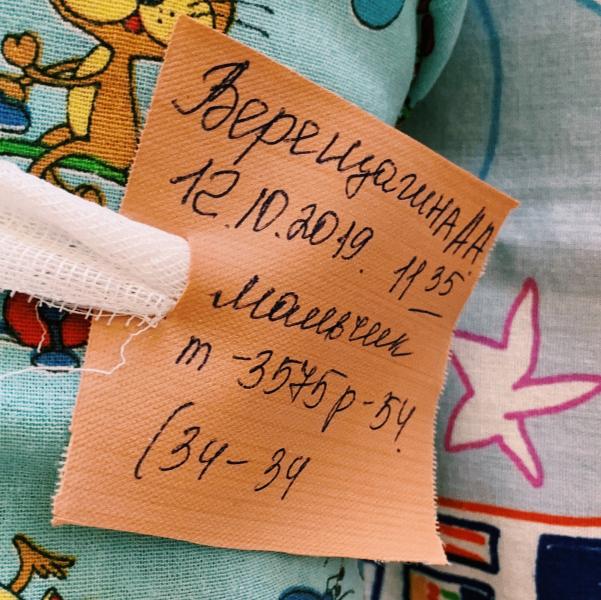 Верещагина АА
12.10.2019. 11 35
мальчик
m - 3575 р - 54
(34 - 34